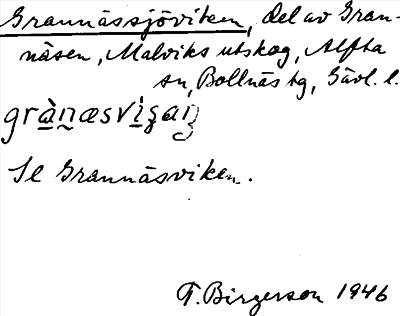 Grannässjöviken, del av Gran-
näsen, Malviks utskog, Alfta
sn, Bollnäs tg, Gävl. l.
grànæsviʂaŋ
Se Grannäsviken.
F. Birgerson 1946